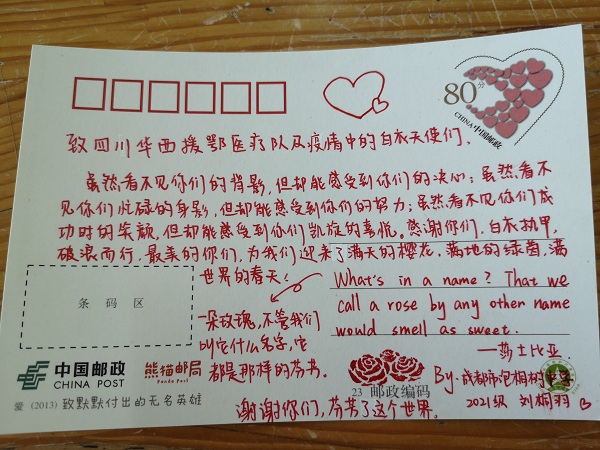 80分
CHINA 中国邮政
致四川华西援鄂医疗队及疫情中的白衣天使们.
虽然看不见你们的背影,但却能感受到你们的决心;虽然看不
见你们忙碌的身影,但却能感受到你们的努力;虽然看不见你们成
功时的笑颜,但却能感受到你们凯旋的喜悦。感谢你们,白衣执甲,
破浪而行,最美的你们,为我们迎来了满天的樱花,满地的绿茵,满
世界的春天!
What's in a name? That we
call a rose by any other name
would smell as sweet.
——莎士比亚
一朵玫瑰,不管我们
叫它什么名字,它
都是那样的芬芳。
条码区
中国邮政
CHINA POST
熊猫邮局
Panda Post
23 邮政编码
By.成都市泡桐树中学
2021级 刘桐羽
爱 (2013) 致默默付出的无名英雄
谢谢你们,芬芳了这个世界.